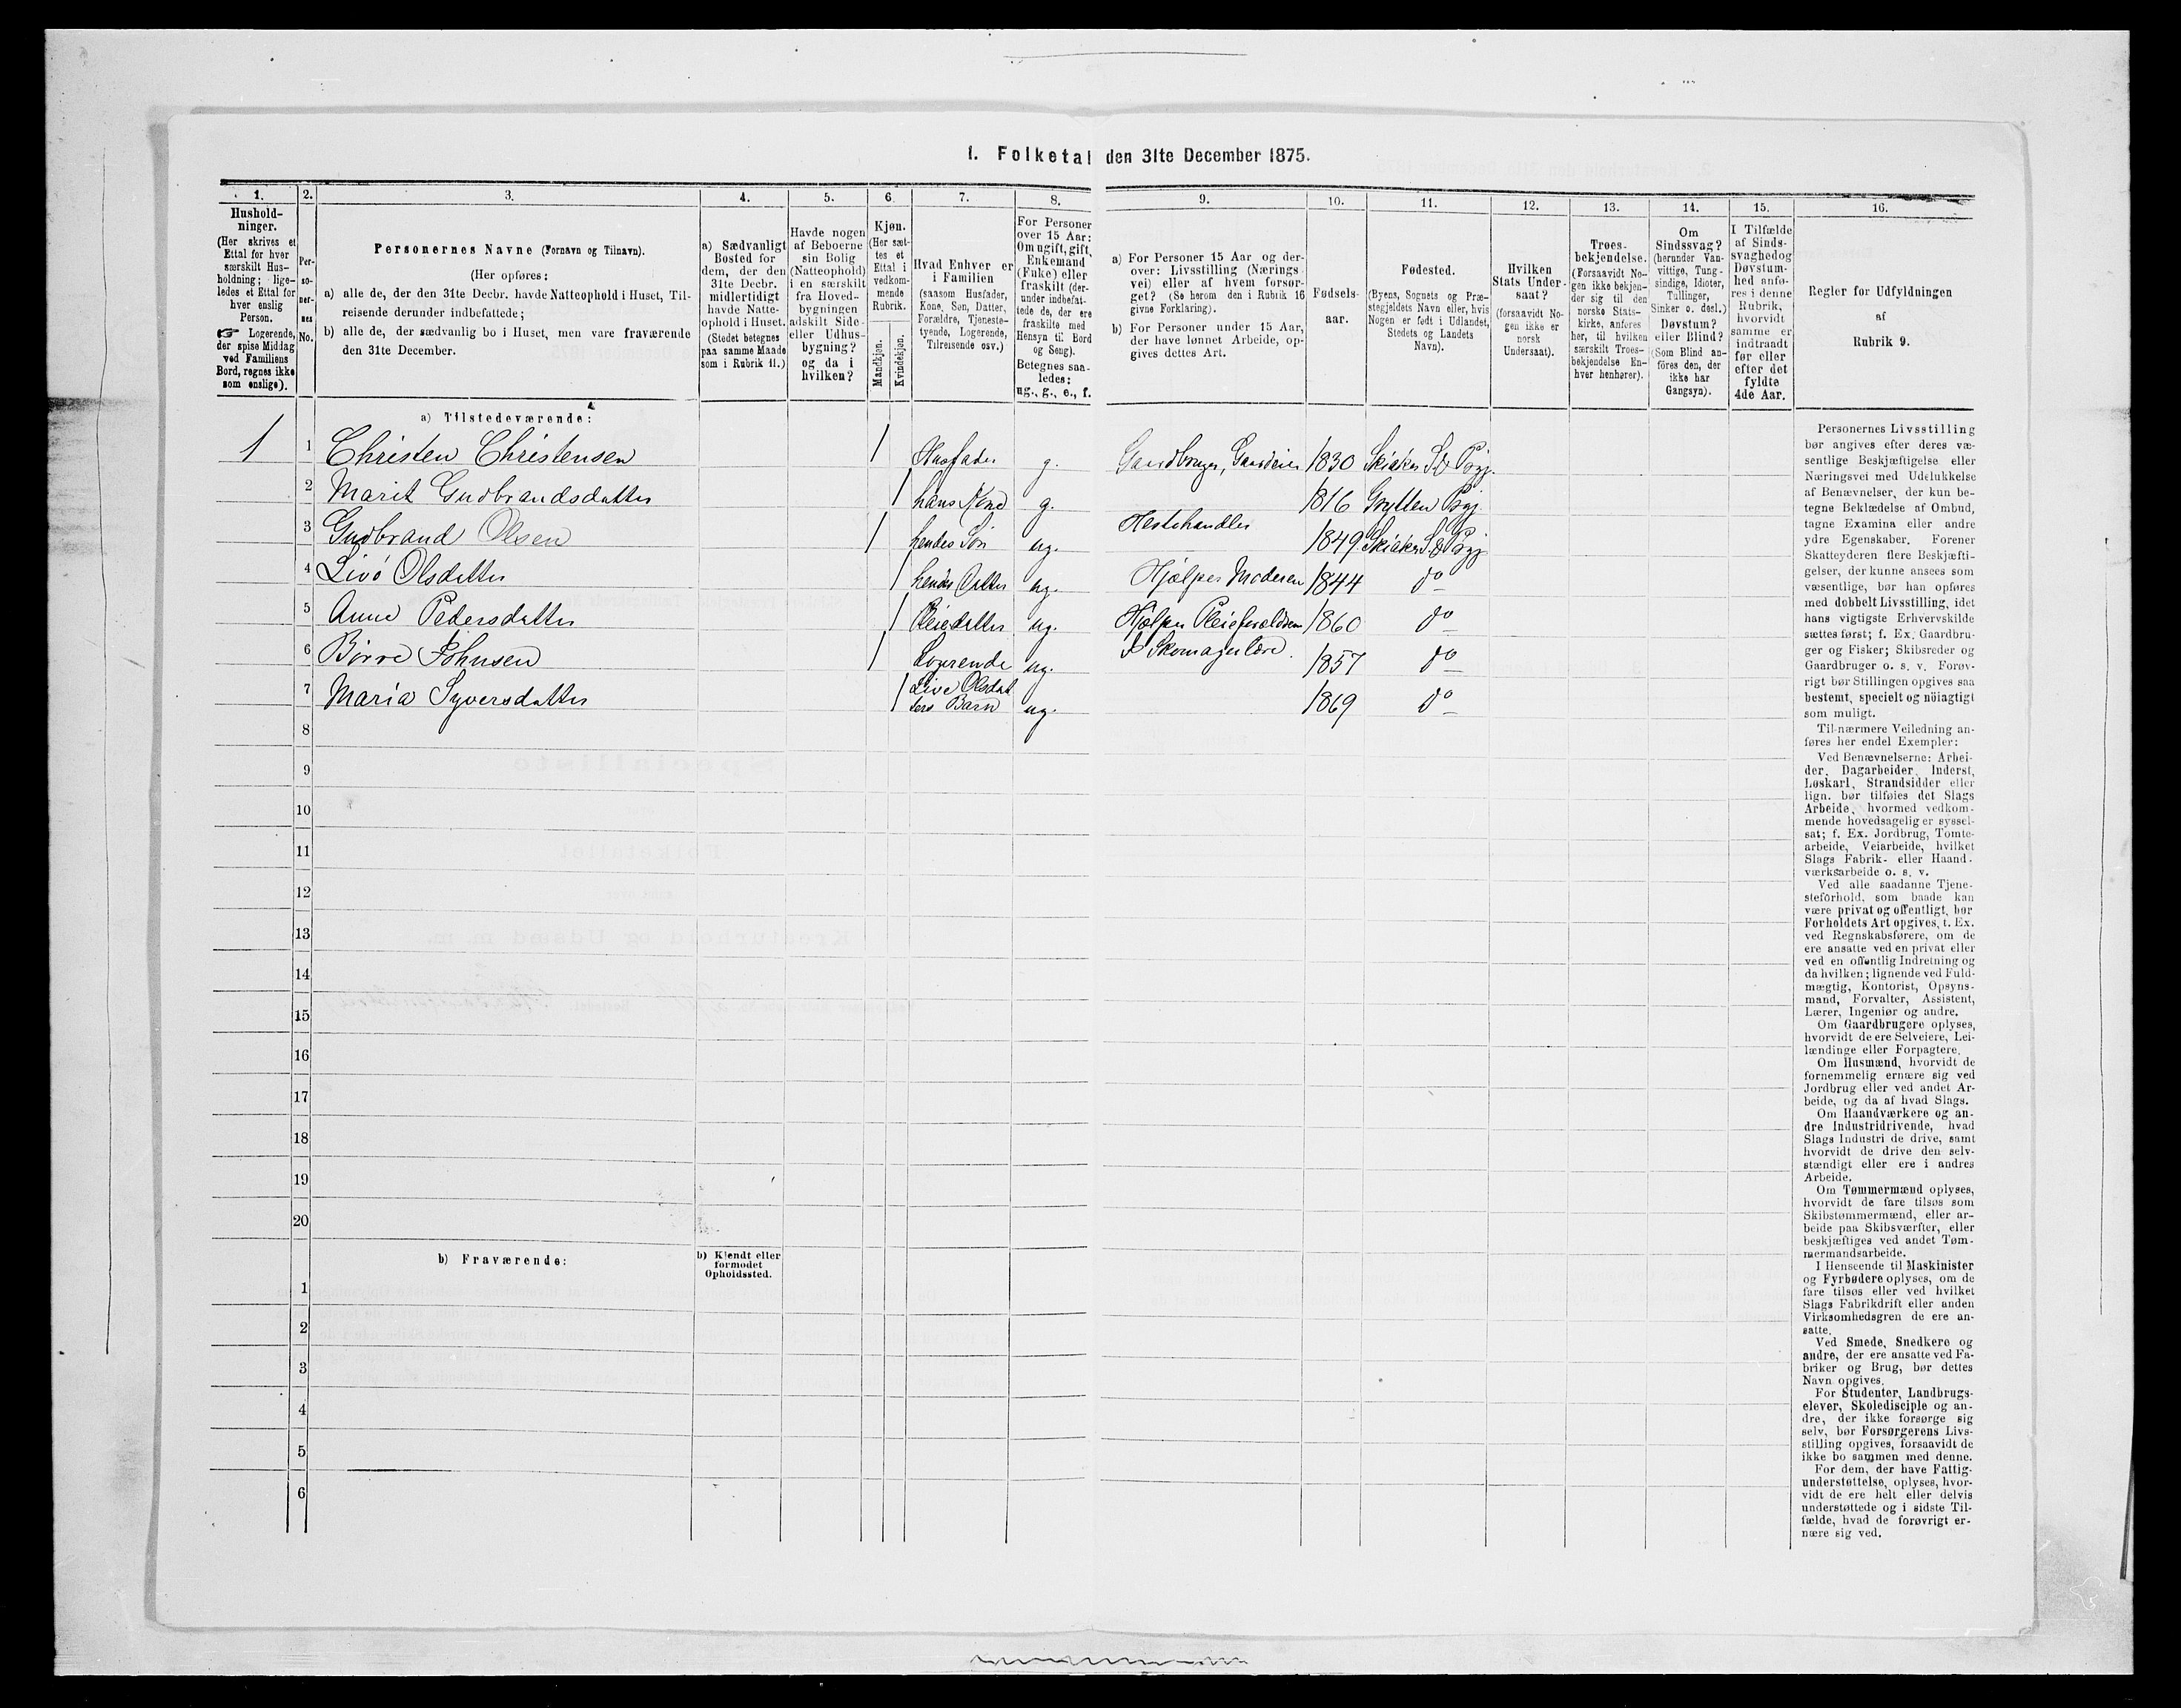 1. Folketal den 31te December 1875.
1. 2. 3. 4. 5. 6. 7. 8. 9. 10. 11. 12. 13. 14. 15. 16.
Hushold-
ninger.
(Her skrives et
Ettal for hver
særskilt Hus-
holdning; lige-
ledes et Ettal for
hver enslig
Person.
☞ Logerende,
der spise Middag
ved Familiens
Bord, regnes ikke
som enslige).
Per-
so-
ner-
nes
No.
Personernes Navne (Fornavn og Tilnavn).
(Her opføres:
a) alle de, der den 31te Decbr. havde Natteophold i Huset, Til-
reisende derunder indbefattede;
b) alle de, der sædvanlig bo i Huset, men vare fraværende
den 31te December.
a) Sædvanligt
Bosted for
dem, der den
31te Decbr.
midlertidigt
havde Natte-
ophold i Huset.
(Stedet betegnes
paa samme Maade
som i Rubrik 11.)
Havde nogen
af Beboerne
sin Bolig
(Natteophold)
i en særskilt
fra Hoved-
bygningen
adskilt Side-
eller Udhus-
bygning?
og da i
hvilken?
Kjøn.
(Her sæt-
tes et
Ettal i
vedkom-
mende
Rubrik.
Mandkjøn.
Kvindekjøn.
Hvad Enhver er
i Familien
(saasom Husfader,
Kone, Søn, Datter,
Forældre, Tjeneste-
tyende, Logerende,
Tilreisende osv.)
For Personer
over 15 Aar:
Om ugift, gift,
Enkemand
(Enke) eller
fraskilt (der-
under indbefat-
tede de, der ere
fraskilte med
Hensyn til Bord
og Seng).
Betegnes saa-
ledes:
ug., g., e., f.
a) For Personer 15 Aar og der-
over: Livsstilling (Nærings-
vei) eller af hvem forsør-
get? (Se herom den i Rubrik 16
givne Forklaring).
b) For Personer under 15 Aar,
der have lønnet Arbeide, op-
gives dettes Art.
Fødsels-
aar.
Fødested.
(Byens, Sognets og Præ-
stegjeldets Navn eller, hvis
Nogen er født i Udlandet,
Stedets og Landets
Navn).
Hvilken
Stats Under-
saat?
(forsaavidt No-
gen ikke er
norsk
Undersaat).
Troes-
bekjendelse.
(Forsaavidt No-
gen ikke bekjen-
der sig til den
norske Stats-
kirke, anføres
her, til hvilken
særskilt Troes-
bekjendelse En-
hver henhører).
Om
Sindssvag?
(herunder Van-
vittige, Tung-
sindige, Idioter,
Tullinger,
Sinker o. desl.)
Døvstum?
eller Blind?
(Som Blind an-
føres den, der
ikke har
Gangsyn).
I Tilfælde
af Sinds-
svaghed og
Døvstum-
hed anfø-
res i denne
Rubrik,
hvorvidt
samme er
indtraadt
før eller
efter det
fyldte
4de Aar.
Regler for Udfyldningen
af
Rubrik 9.
a) Tilstedeværende:
1 1 Christen Christensen 1 Husfader g. Gaardbruger, Gaardeier 1830 Skiaker S & Pgj.
2 Marit Gudbrandsdatter 1 hans Kone g. 1816 Grytten Pgj.
3 Gudbrand Olsen 1 hendes Søn ug. Hestehandler 1849 Skiaker S & Pgj
4 Livó Olsdatter 1 hendes Datter ug. Hjælper Moderen 1844 do
5 Anne Pedersdatter 1 Pleiedatter ug. Hjælper Pleieforældrene 1860 do
6 Børre Johnsen 1 Logerende ug. I Skomagerlære. 1857 do
7 Maria Syversdatter 1 Live Olsdat
ters Barn ug. 1869 do
8
9
10
11
12
13
14
15
16
17
18
19
20
b) Fraværende:
b) Kjendt eller
formodet
Opholdssted.
1
2
3
4
5
6
Personernes Livsstilling
bør angives efter deres væ-
sentlige Beskjæftigelse eller
Næringsvei med Udelukkelse
af Benævnelser, der kun be-
tegne Beklædelse af Ombud,
tagne Examina eller andre
ydre Egenskaber. Forener
Skatteyderen flere Beskjæfti-
gelser, der kunne ansees som
væsentlige, bør han opføres
med dobbelt Livsstilling, idet
hans vigtigste Erhvervskilde
sættes først; f. Ex. Gaardbru-
ger og Fisker; Skibsreder og
Gaardbruger o. s. v. Forøv-
rigt bør Stillingen opgives saa
bestemt, specielt og nöiagtigt
som muligt.
Til nærmere Veiledning an-
føres her endel Exempler:
Ved Benævnelserne: Arbei-
der, Dagarbeider, Inderst,
Løskarl, Strandsidder eller
lign. bør tilføies det Slags
Arbeide, hvormed vedkom-
mende hovedsagelig er syssel-
sat; f. Ex. Jordbrug, Tomte-
arbeide, Veiarbeide, hvilket
Slags Fabrik- eller Haand-
værksarbeide o. s. v.
Ved alle saadanne Tjene-
steforhold, som baade kan
være privat og offentligt, bør
Forholdets Art opgives, t. Ex.
ved Regnskabsførere, om de
ere ansatte ved en privat eller
ved en offentlig Indretning og
da hvilken; lignende ved Fuld-
mægtig, Kontorist, Opsyns-
mand, Forvalter, Assistent,
Lærer, Ingeniør og andre.
Om Gaardbrugere oplyses,
hvorvidt de ere Selveiere, Lei-
lændinge eller Forpagtere.
Om Husmænd, hvorvidt de
fornemmelig ernære sig ved
Jordbrug eller ved andet Ar-
beide, og da af hvad Slags.
Om Haandværkere og an-
dre Industridrivende, hvad
Slags Industri de drive, samt
hvorvidt de drive den selv-
stændigt eller ere i andres
Arbeide.
Om Tømmermænd oplyses,
hvorvidt de fare tilsøs som
Skibstømmermænd, eller ar-
beide paa Skibsværfter, eller
beskjæftiges ved andet Tøm-
mermandsarbeide.
I Henseende til Maskinister
og Fyrbødere oplyses, om de
fare tilsøs eller ved hvilket
Slags Fabrikdrift eller anden
Virksomhedsgren de ere an-
satte.
Ved Smede, Snedkere og
andre, der ere ansatte ved Fa-
briker og Brug, bør dettes
Navn opgives.
For Studenter, Landbrugs-
elever, Skoledisciple og an-
dre, der ikke forsørge sig
selv, bør Forsørgerens Livs-
stilling opgives, forsaavidt de
ikke bo sammen med denne.
For dem, der have Fattig-
understøttelse, oplyses, hvor-
vidt de ere helt eller delvis
understøttede og i sidste Til-
fælde, hvad de forøvrigt er-
nære sig ved.